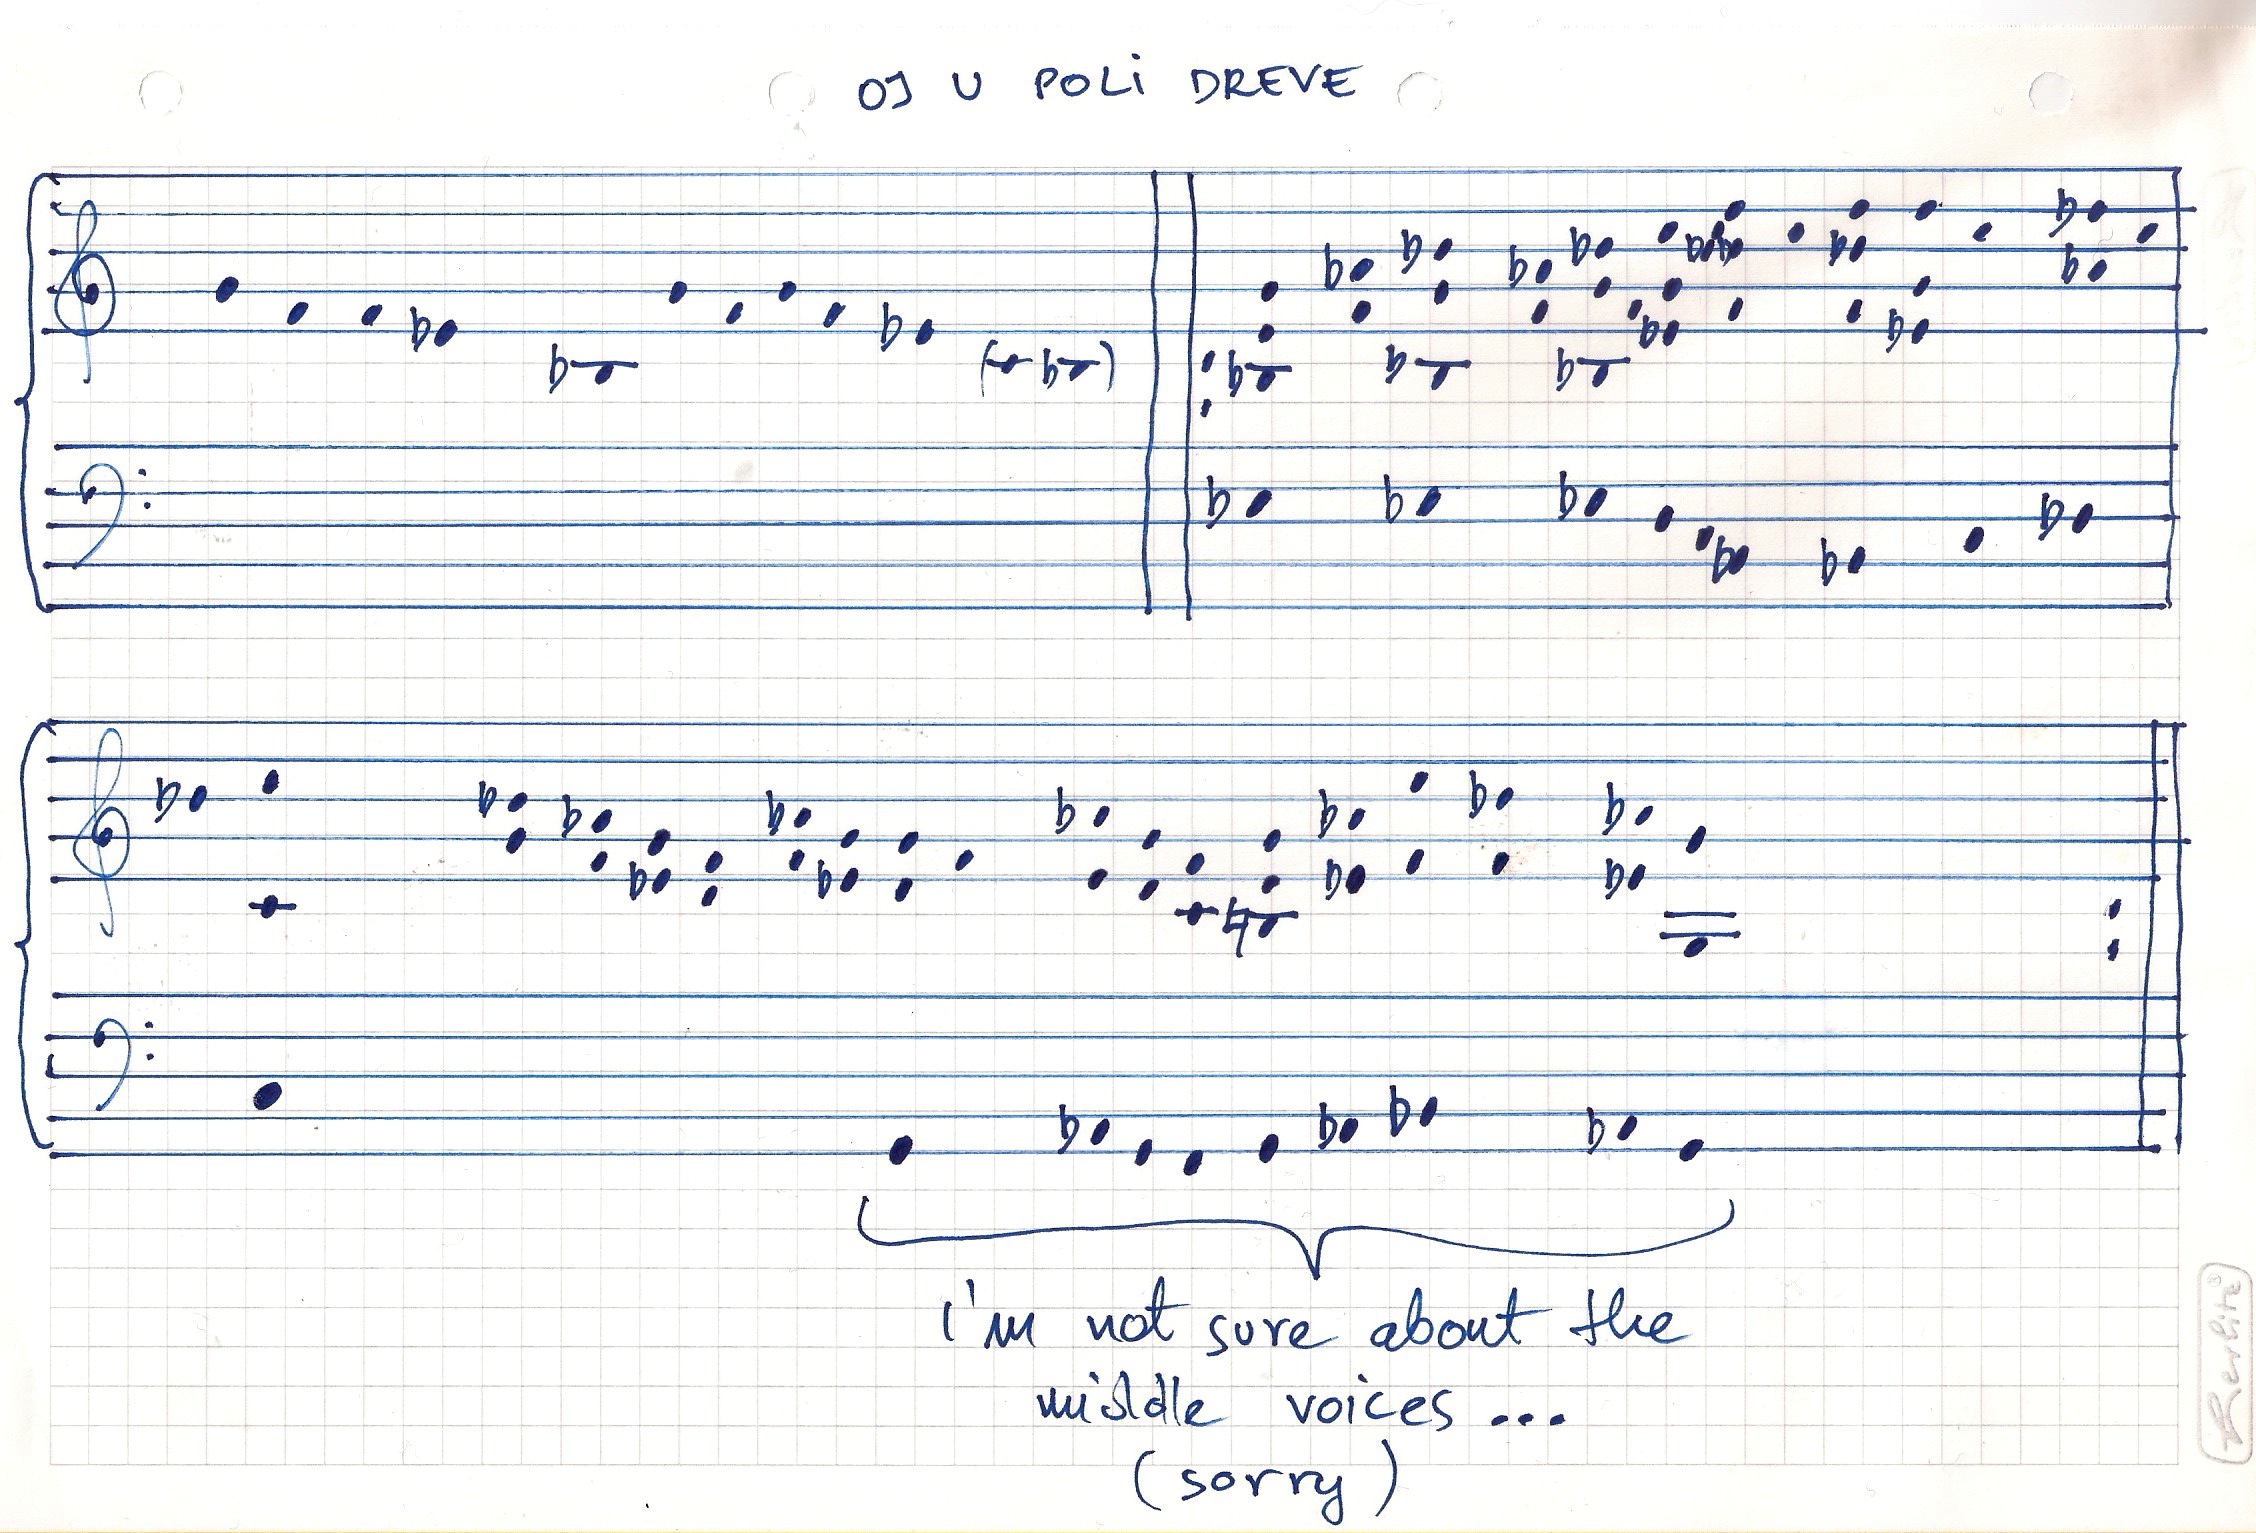 OJ U POLi DREVE
I'm not sure about the
middle voices ...
(sorry)